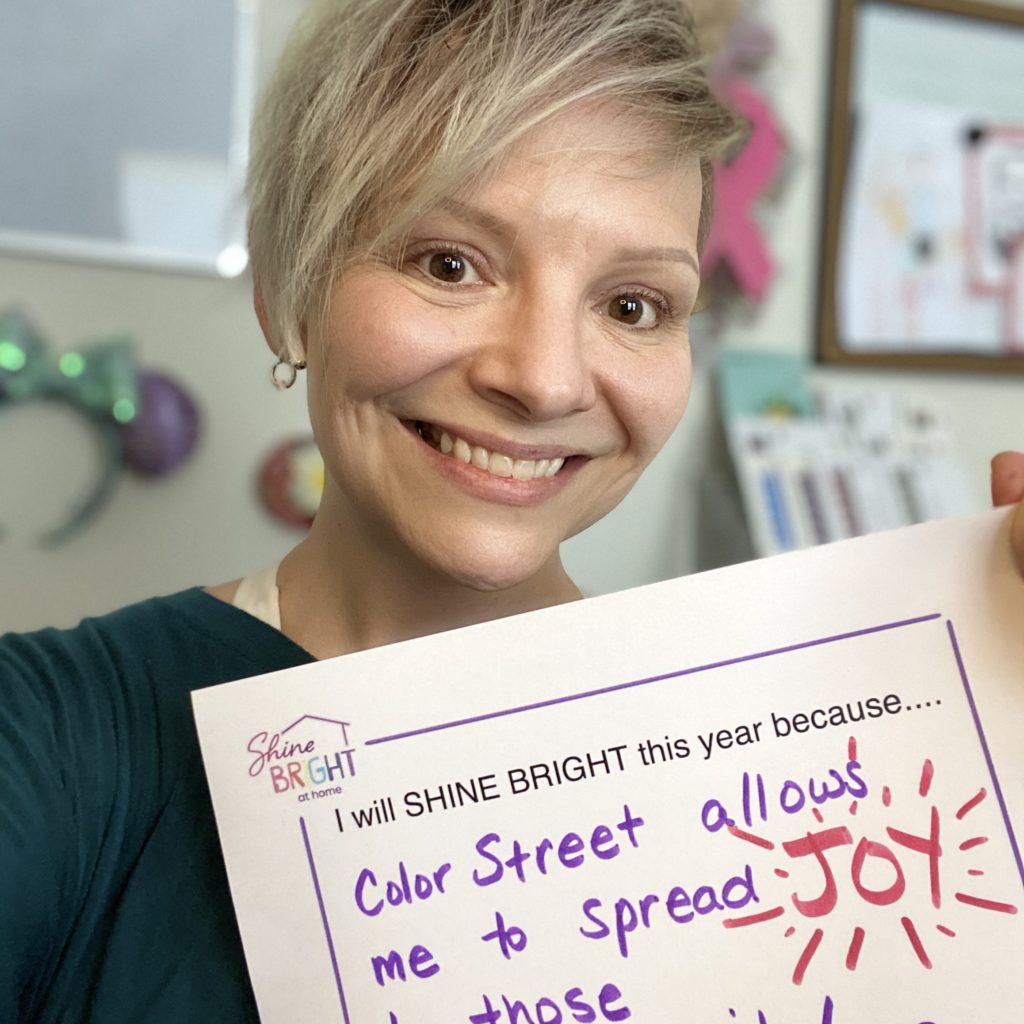 Shine
BRIGHT
at home
I will SHINE BRIGHT this year because....
Color Street allows
me to spread JOY
those